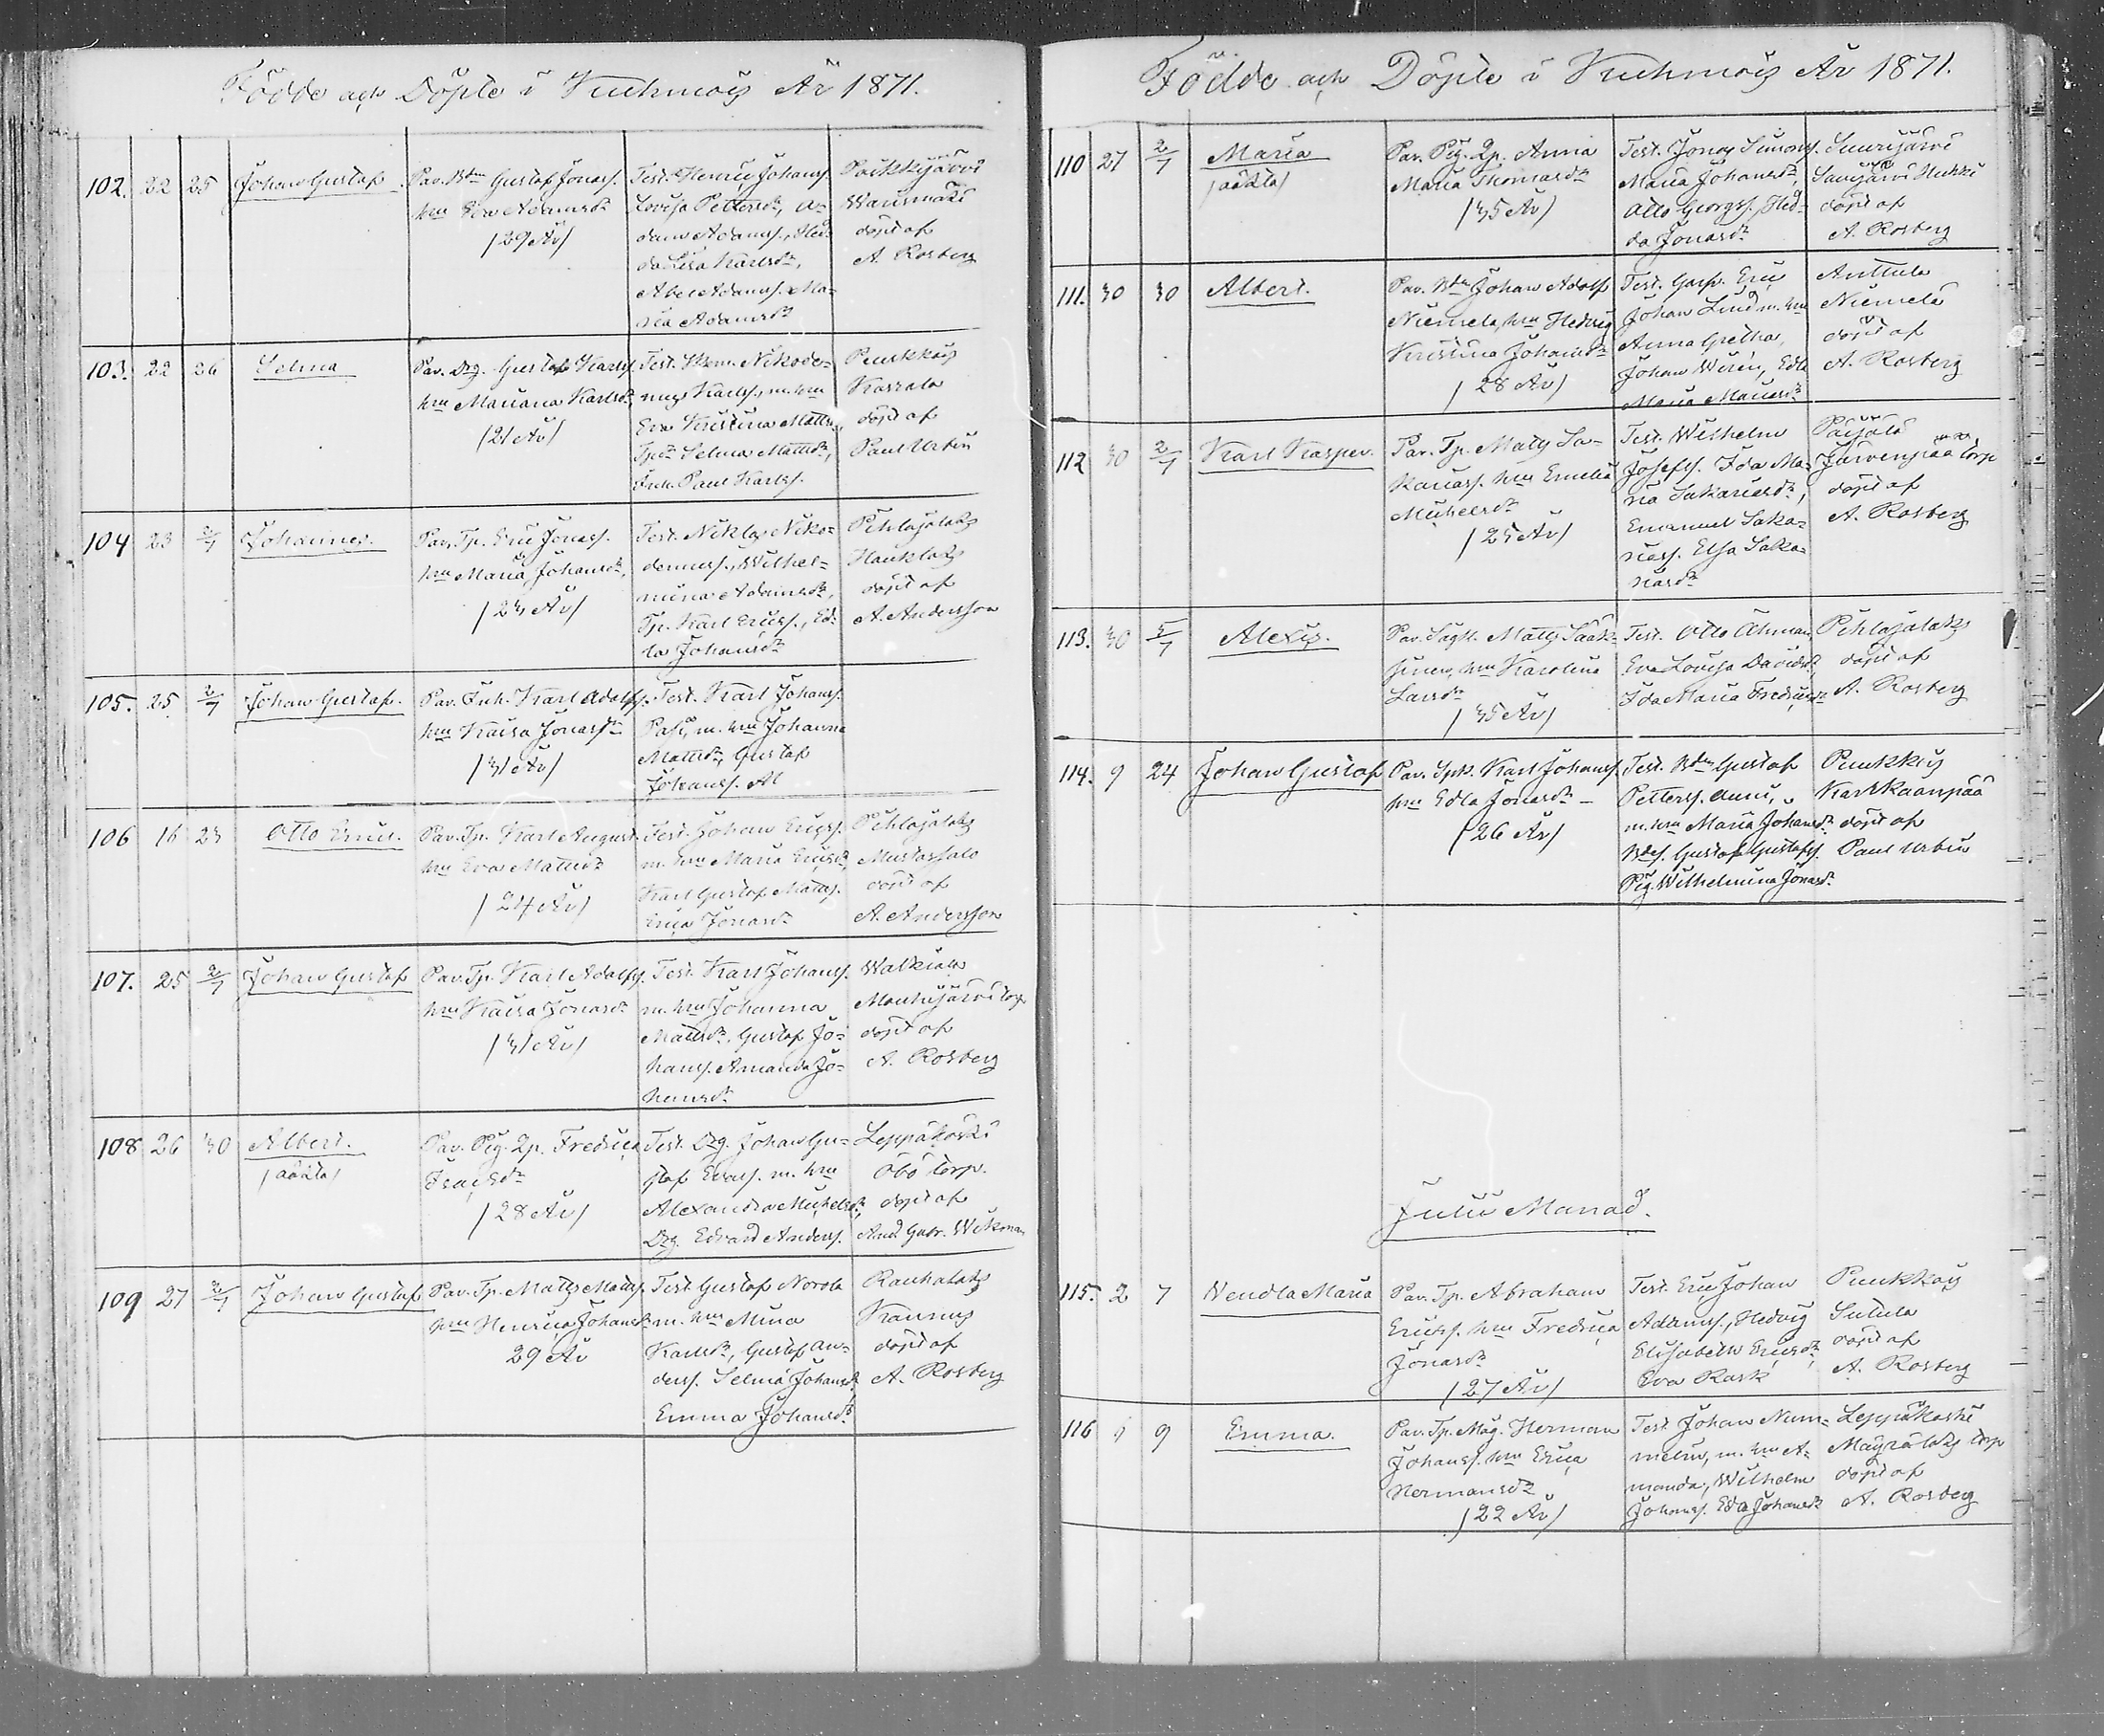 Födde och Döpte i Kuhmois År 1871.
102. 22 25 Johan Gustaf
Par. Bdm Gustaf Jonass.
hm Eva Adamsdr
/29 År/
Test. Henric Johanss.
Lovisa Pettersdr, A=
dam Adamss., Hed=
da Lisa Karlsdr,
Abel Adamss. Ma=
ria Adamsdr
Paikkijärvi
Warismäki
döpt af
A. Rosberg
103. 22 26 Selma
Par. Drg. Gustaf Karlss.
hm Mariana Karlsdr
/21 År/
Test. Nikode=
mus Karlss. m. hm
Eva Kristina Mattsdr,
Selma Mattsdr,
Inh. Paul Karlss.
Puukkois
Karrala
döpt af
Paul Urbin
104 23 2/7 Johannes.
Par. Tp. Eric Jonass.
hm Maria Johansdr,
/23 År/
Test. Niklas Niko=
demuss., Wilhel=
mina Adamsdr,
Tp. Karl Ericss., Ed=
la Johansdr
Pihlajalaks
Haukilaks
döpt af
A. Andersson
105. 25 2/7 Johan Gustaf.
Par. Inh. Karl Adolfss.
hm Kaisa Jonassdr
/31 År/
Test. Karl Johanss.
m. hm Johanna
Mattsdr, Gustaf
Johanss. Al
106 16 23 Otto Emil.
Par. Tp. Karl August
hm Eva Mattsdr
/24 År/
Test. Johan Ericss.
m. hm Maria Ericsdr,
Karl Gustaf Matss.
Erica Jonasdr
Pihlajalaks
Mustassalo
döpt af
A. Andersson
107. 25 2/7 Johan Gustaf
Par. Tp. Karl Adolfss.
hm Kaisa Jonasdr
/31 År/
Test. Karl Johanss.
m. hm Johanna
Mattsdr. Gustaf Jo=
hanss. Amanda Jo=
hansdr
Walkiala
torp
döpt af
A. Rosberg
108 26 30 Albert.
/oäkta/
Par. Pig. Lp. Fredrica
Isacsdr
/28 År/
Test. Drg. Johan Gu=
staf m. hm
Alexandra Michelsdr,
Drg. Edvard Anderss.
Leppäkoski
Öbo torp.
döpt af
And. Gabr. Wikman
109 27 2/7 Johan Gustaf
Par. Tp. Matts Matss.
hm Henrica Johansdr
29 År
Test. Gustaf Norola
m. hm Mina
Karlsdr, Gustaf An=
derss. Selma Johansdr
Emma Johansdr
Rauhalaks
Kannus
döpt af
A. Rosberg
Födde och Döpte i Kuhmois År 1871.
110 27 2/7 Maria
/oäkta/
Par. Pig. Lp. Anna
Maria Thomasdr
/35 År/
Test. Jonas Simonss.
Maria Johansdr,
Otto Georgss., Hed=
da Jonasdr
Suurijärvi
döpt af
A. Rosberg
111. 30 30 Albert.
Par. Bdn Johan Adolf
Niemelä, hm Hedvig
Kristina Johansdr
/28 År/
Test. Eric
Johan Lind m. hm
Anna Gretha,
Johan Wirén, Edla
Maria Mariasdr
Anttula
Niemelä
döpt af
A. Rosberg
112 30 2/7 Karl Kasper.
Par. Tp. Matts Sa=
kariass. hm Emelia
Michelsdr
/25 År/
Test. Wilhelm
Josefss. Ida Ma=
ria Sakariasdr,
Emanuel Saka=
riass. Elsa Saka=
riasdr
Päijälä
Järvenpää torp
döpt af
A. Rosberg
113. 30 5/7 Alexis.
Par. Matts Sääk=
hm Karolina
Larsdr
/35 År/
Test. Otto Åhman,
Eva Lovisa Davidsdr,
Ida Maria Fredricsdr
Pihlajalaks
döpt af
A. Rosberg
114. 9 24 Johan Gustaf
Par. Karl Johanss.
hm Edla Jonasdr -
/26 År/
Test. Bdn Gustaf
Petterss.
m. hm Maria Johansdr.
Gustaf Gustafss.
Pig. Wilhelmina Jonasdr.
Puukkois
Karkkaanpää
döpt af
Paul Urbin
Julii Månad.
115. 2 7 Wendla Maria
Par. Tp. Abraham
Ericss. hm Fredrica
Jonasdr
/27 År/
Test. Eric Johan
Adamss., Hedvig
Elisabeth Ericsdr,
Eva Rask
Puukkois
Sutula
döpt af
A. Rosberg
116 9 Emma.
Par. Tp. Måg. Herman
Johanss. hm Erica
Hermansdr
/22 År/
Test. Johan Num=
melin, m. hm A=
manda, Wilhelm
Johanss. Eda Johansdr
Leppäkoski
Mäyrälaks torp
döpt af
A. Rosberg